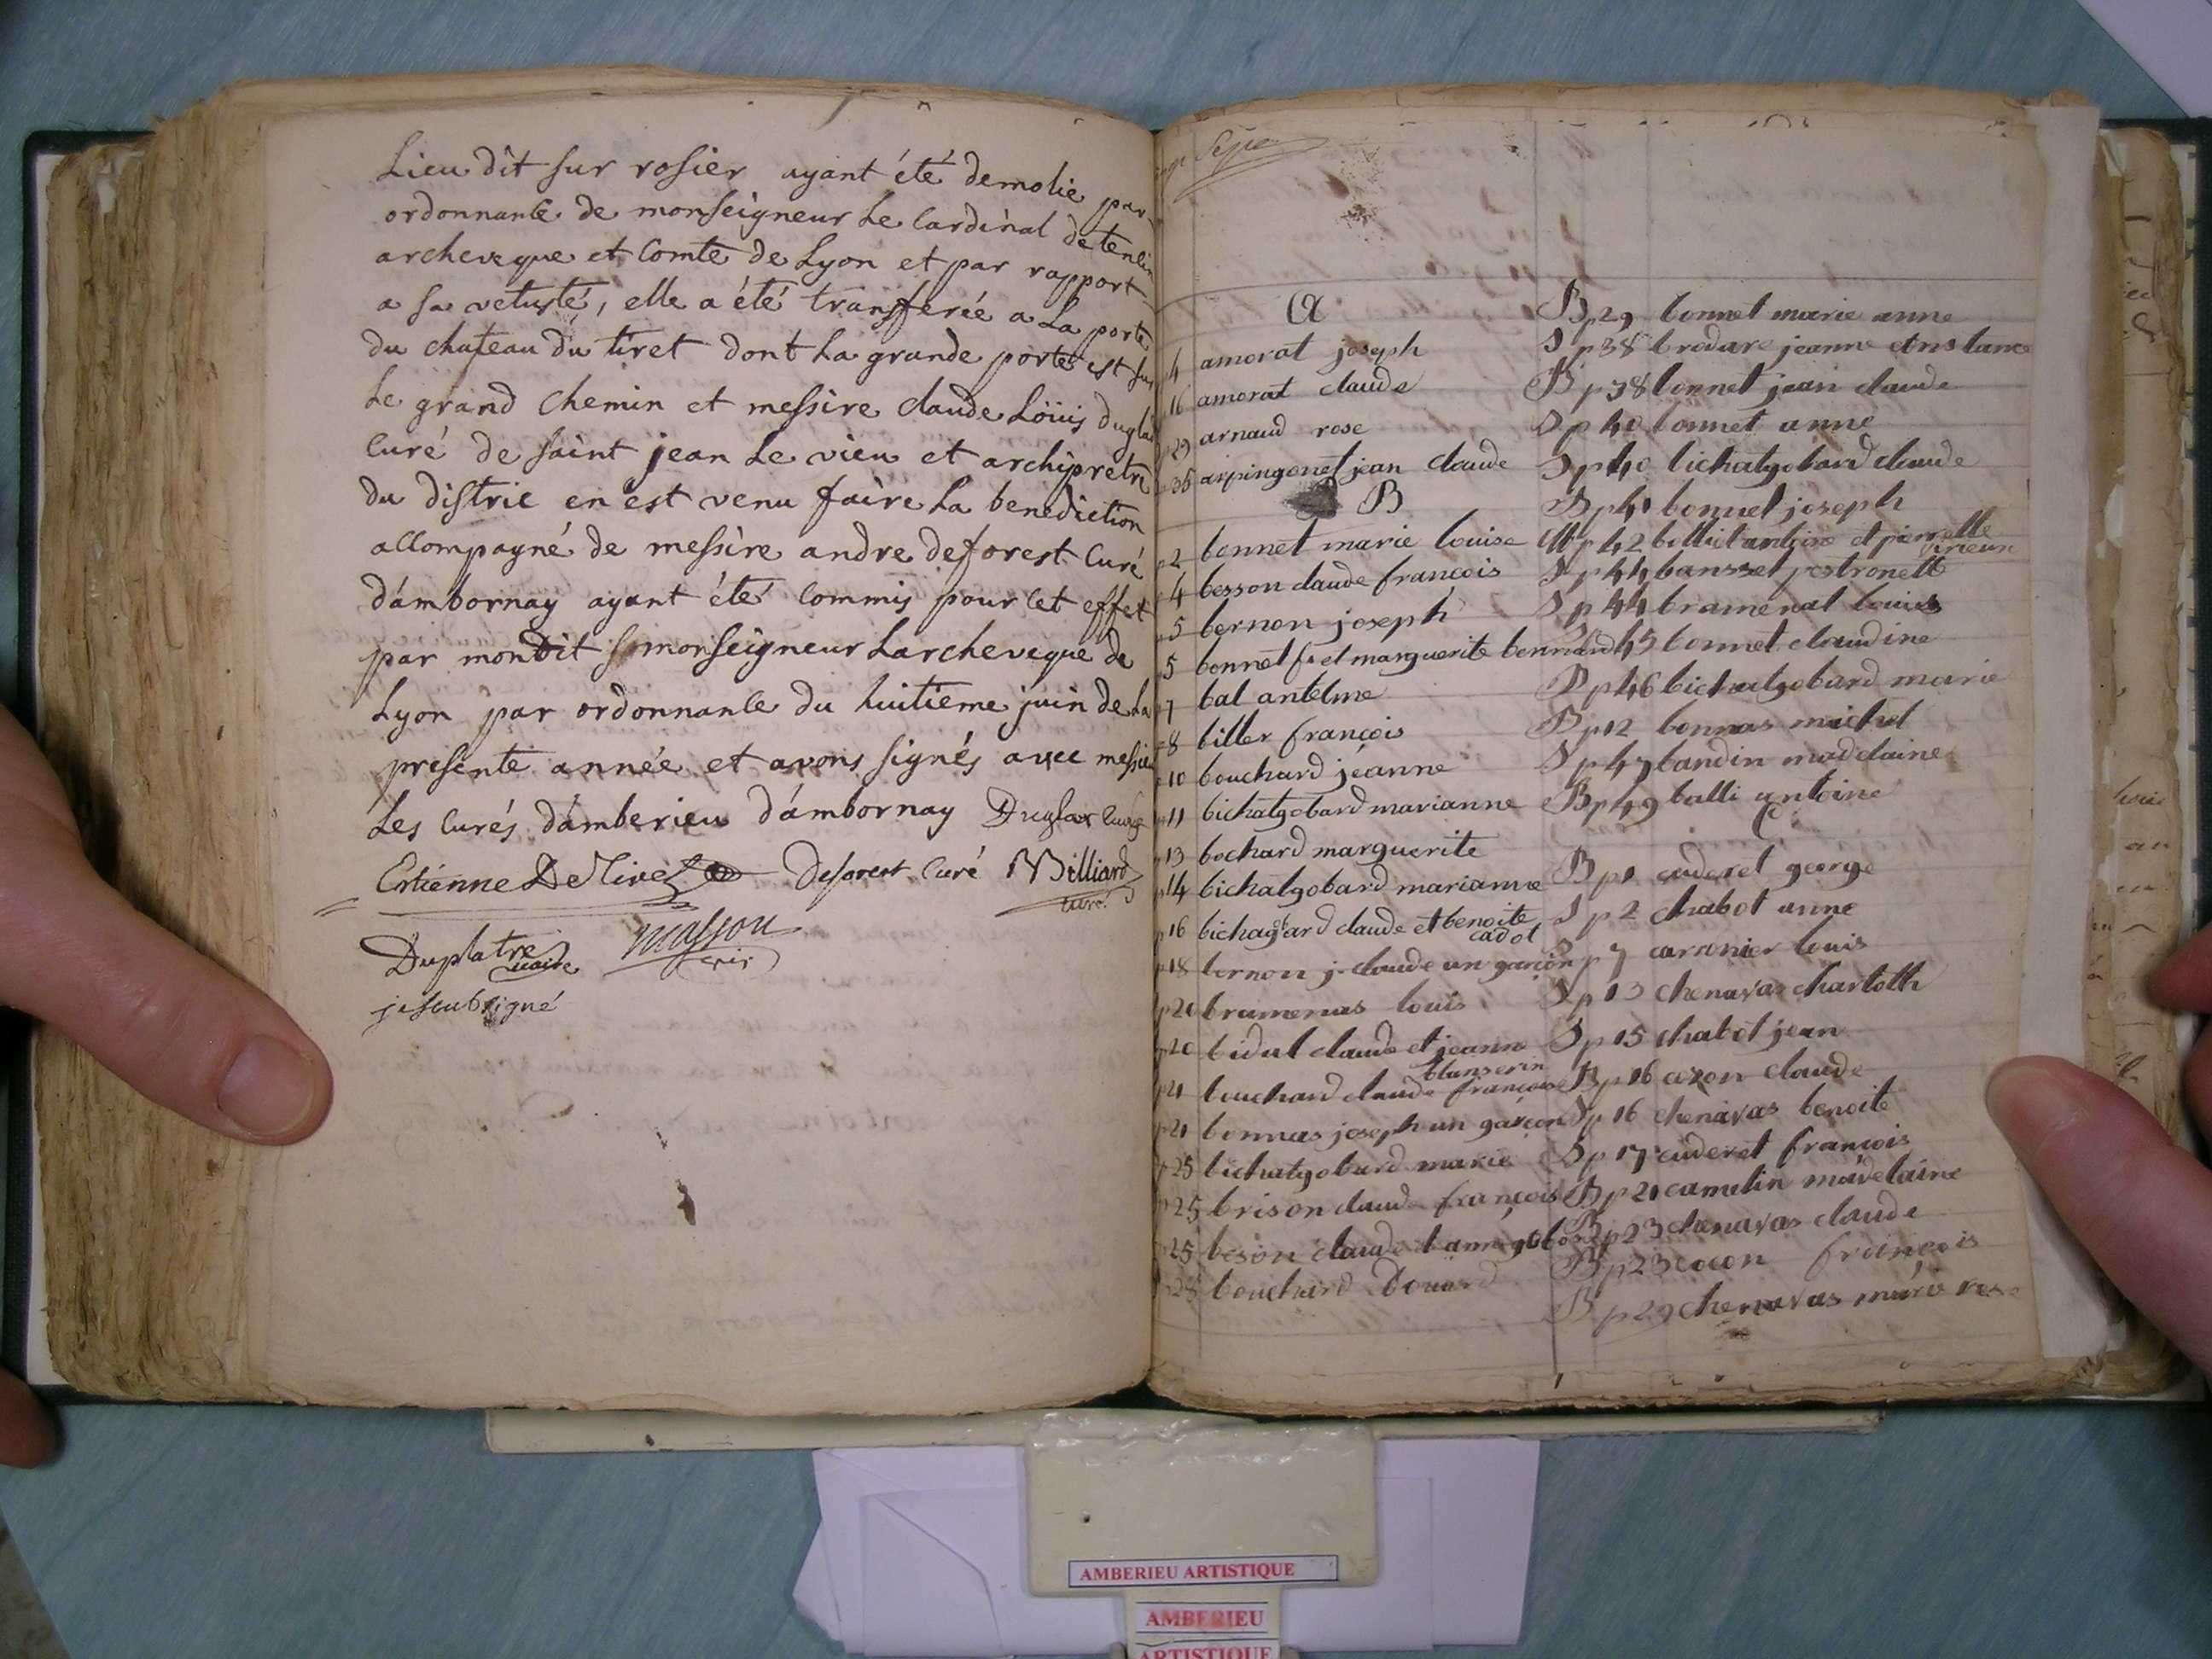 Lieu dit sur rosier ayant été demolie par
ordonnance de monseigneur Le Cardinal detencin
archeveque et Comte de Lyon et par rapport
a sa vetusté, elle a été transferée a La porte
du chateau du tiret dont La grande porte est sur
Le grand chemin et messire claude Loüis duglas
Curé de saint jean Le vieu et archipretre
du distric en est venu faire La benediction
accompagné de messire andre deforest Curé
d'ambornay ayant été Commis pour Cet effet
par mondit monseigneur Larcheveque de
Lyon par ordonnance du huitieme juin de La
presente année et avons signés avec messire
Les Curés d'amberieu d'ambornay Duglas Curé
Estienne De Tiret Deforest Curé Billiard
curé
Duplatre masson
jesoubsigné
a
4 amorat joseph
16 amorat claude
29 arnaud rose
36 arpingonet jean claude
B
2 bonnet marie louise
4 besson claude françois
5 bernon joseph
5 bonnet fr et marguerite bonnard
7 bal antelme
8 biller françois
10 bouchard jeanne
11 bichatgobard marianne
13 bochard marguerite
14 bichatgobard marianne
16 bichagbard claude et benoite
cadot
18 bernon j. claude un garçon
p20 bramenas louis
p20 bidal claude et jeanne
blanserin
p21 bouchard claude françoise
p21 bonnas joseph un garçon
p25 bichatgobard marie
p25 brison claude françois
25 beson claude
28 bouchard
B p29 bonnet marie anne
S p38 brodare jeanne constance
B p38 bonnet jean claude
S p40 bonnet anne
S p40 bichatgobard claude
B p41 bonnet joseph
M p42 bolliet antoine et pierrette
S p44 bansset petronette
S p44 bramenal louis
45 bonnet claudine
B p46 bichatgobard marie
B p12 bonnas michel
S p47 bandin madelaine
B p49 balli antoine
C
B p1 cuderet george
S p2 chabot anne
S p7 carronier louis
S p13 chenavas charlotte
S p15 chabot jean
B p16 cozon claude
S p16 chenavas benoite
S p17 cuderet françois
B p21 camelin madelaine
B p23 chenavas claude
B p23 cocon françois
B p29 chenavas marie rose
AMBERIEU ARTISTIQUE
AMBERIEU
ARTISTIQUE